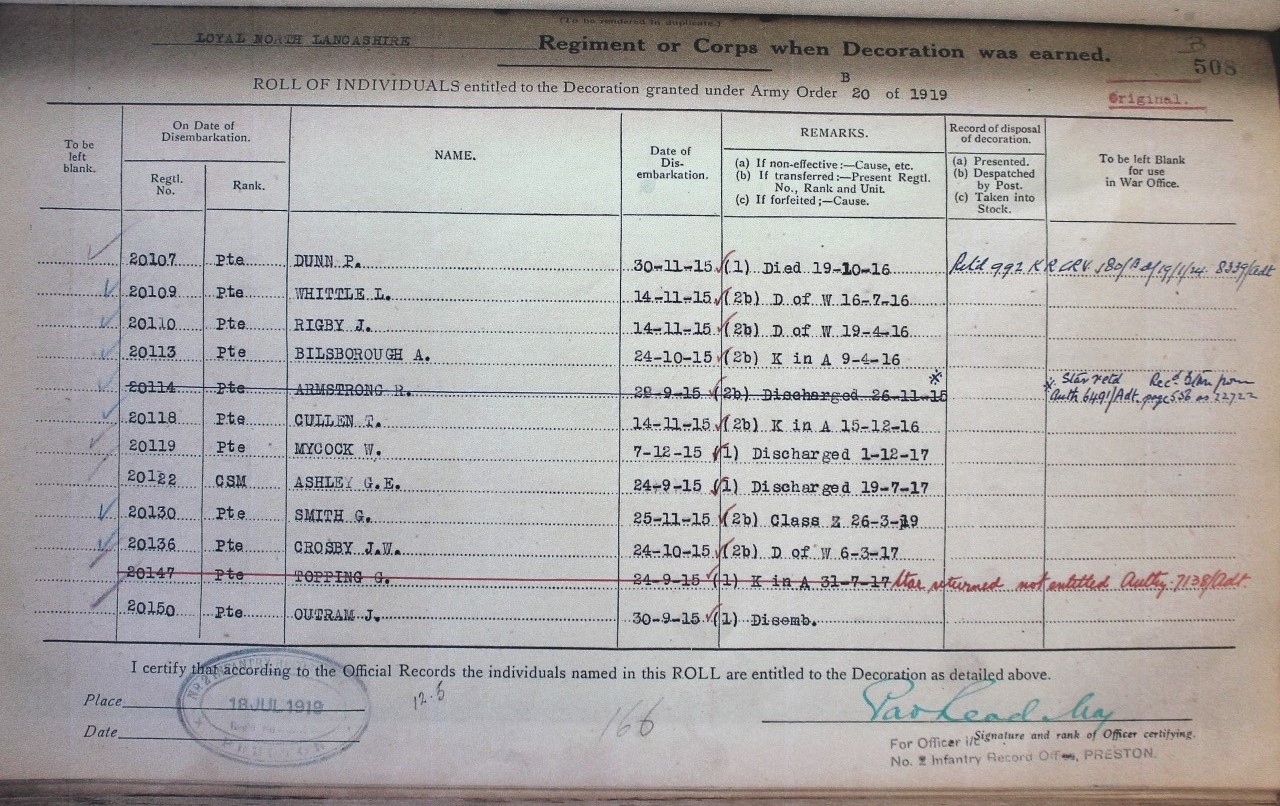 (To be rendered in duplicate.)
LOYAL NORTH LANCASHIRE Regiment or Corps when Decoration was earned.
508
ROLL OF INDIVIDUALS entitled to the Decoration granted under Army Order B 20 of 1919
Original.
To be left blank.
On Date of Disembarkation.
Regtl. No.
Rank.
NAME.
Date of Dis-embarkation.
REMARKS.
(a) If non-effective:—Cause, etc.
(b) If transferred:—Present Regtl. No., Rank and Unit.
(c) If forfeited;—Cause.
Record of disposal of decoration.
(a) Presented.
(b) Despatched by Post.
(c) Taken into Stock.
To be left Blank for use in War Office.
20107 Pte DUNN P. 30-11-15 (1) Died 19-10-16 Retd 992 K R
20109 Pte WHITTLE L. 14-11-15 (2b) D of W 16-7-16
20110 Pte RIGBY J. 14-11-15 (2b) D of W 19-4-16
20113 Pte BILSBOROUGH A. 24-10-15 (2b) K in A 9-4-16
20114 Pte ARMSTRONG R. 28-9-15 (2b) Discharged 26-11-15 * * Star retd
Auth 6491/Adt. page 556
20118 Pte CULLEN T. 14-11-15 (2b) K in A 15-12-16
20119 Pte MYCOCK W. 7-12-15 (1) Discharged 1-12-17
20122 CSM ASHLEY G.E. 24-9-15 (1) Discharged 19-7-17
20130 Pte SMITH G. 25-11-15 (2b) Class Z 26-3-19
20136 Pte CROSBY J.W. 24-10-15 (2b) D of W 6-3-17
20147 Pte TOPPING G. 24-9-15 (1) K in A 31-7-17 Star returned not entitled Authy. 7138/Adt.
20150 Pte OUTRAM J. 30-9-15 (1) Disemb.
I certify that according to the Official Records the individuals named in this ROLL are entitled to the Decoration as detailed above.
Place
18 JUL 1919
PRESTON
12.5
166
Date
Signature and rank of Officer certifying.
For Officer i/c
No. 2 Infantry Record Office, PRESTON.